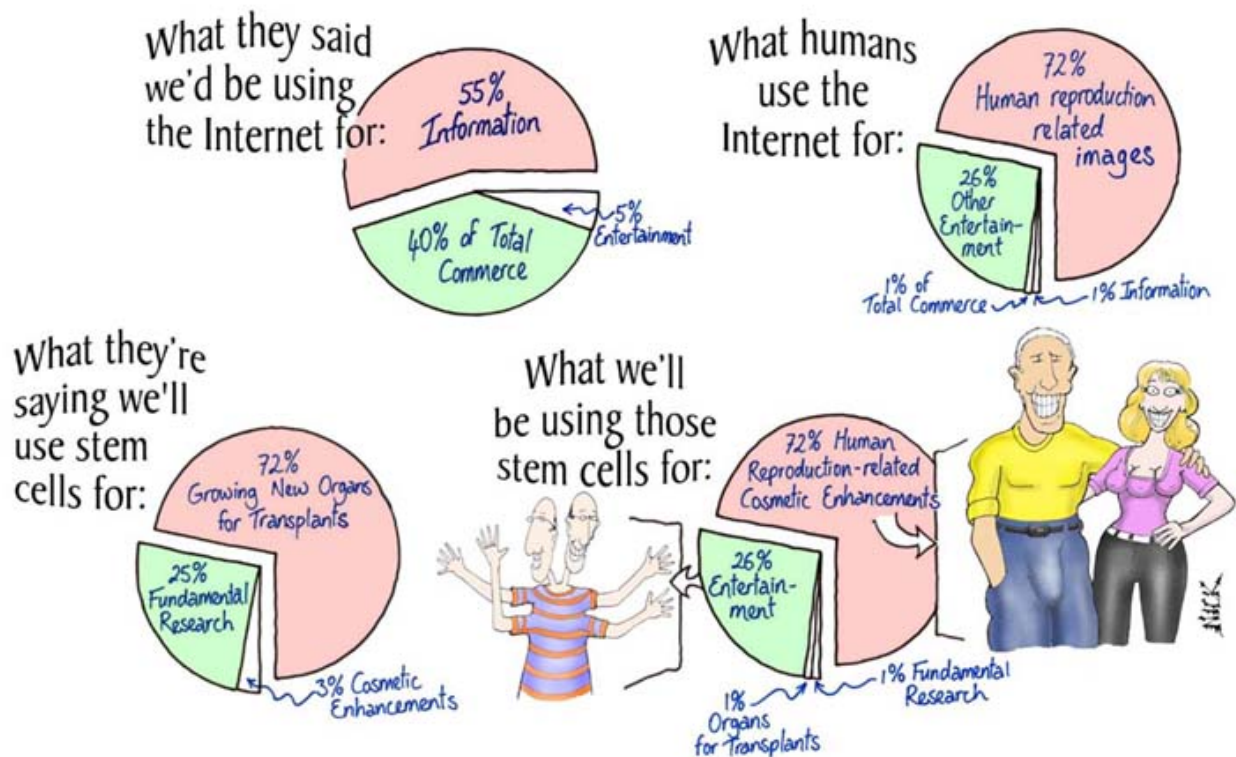 What they said
we'd be using
the Internet for:
55%
Information
40% of Total
Commerce
5%
Entertainment
What humans
use the
Internet for:
72%
Human reproduction
related
images
26%
Other
Entertain-
ment
1% of
Total Commerce
1% Information
What they're
saying we'll
use stem
cells for:
72%
Growing New Organs
for Transplants
25%
Fundamental
Research
3% Cosmetic
Enhancements
What we'll
be using those
stem cells for:
72% Human
Reproduction-related
Cosmetic Enhancements
26%
Entertain-
ment
1%
Organs
for Transplants
1% Fundamental
Research
NICK